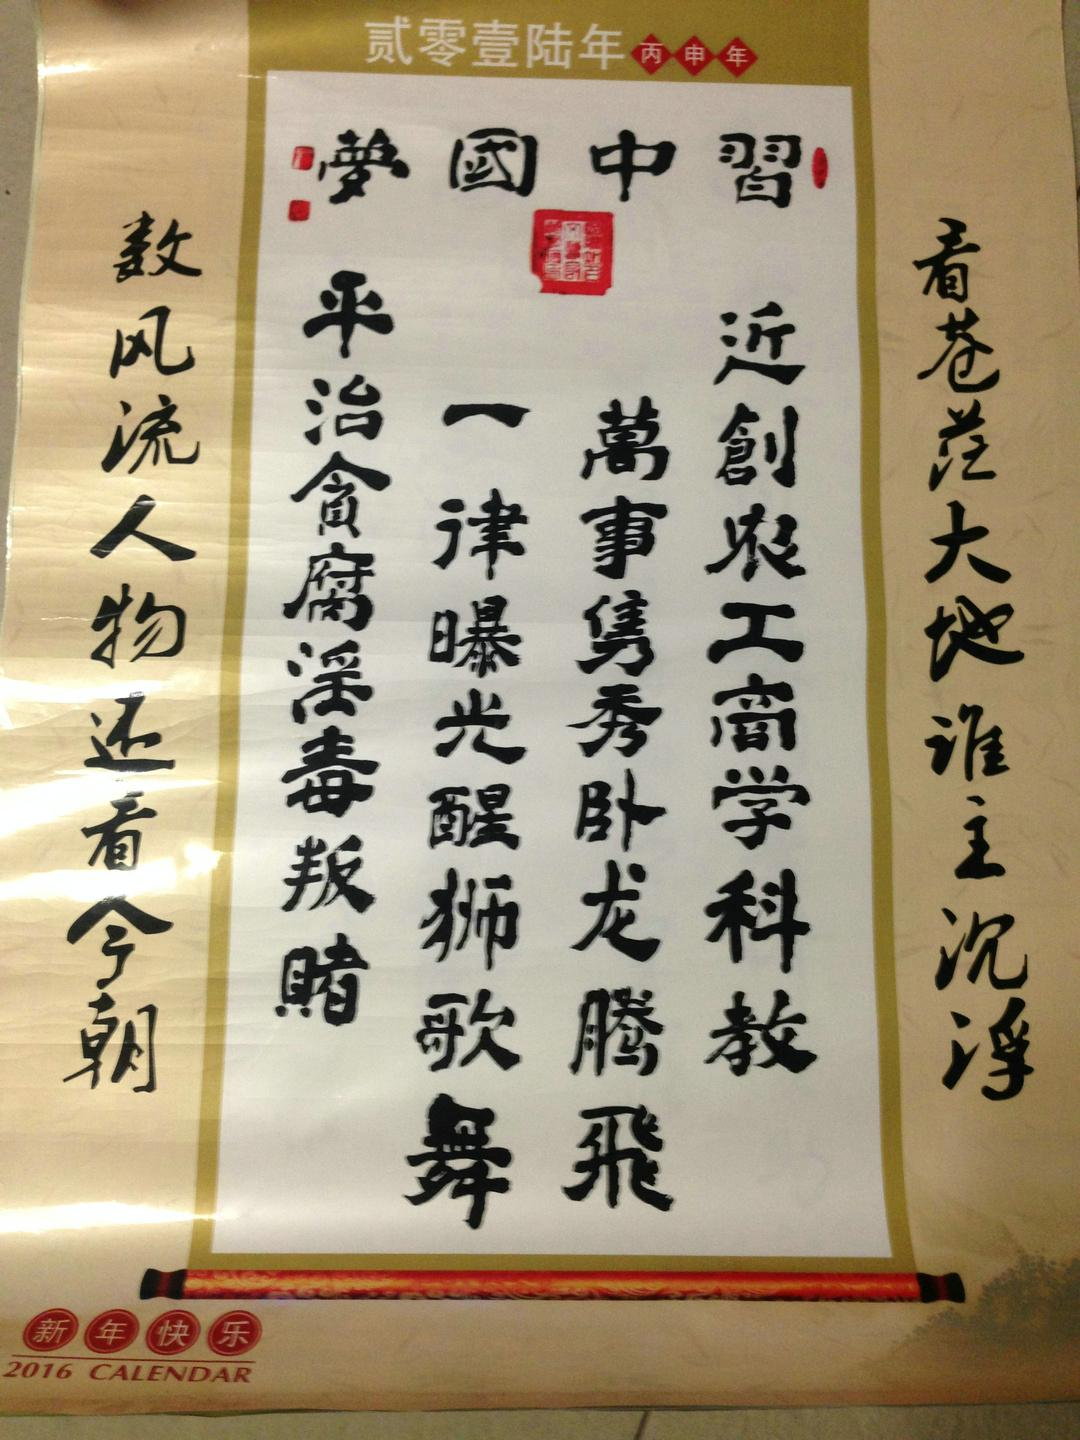 贰零壹陆年 丙申年
習中國夢
看苍茫大地谁主沉浮
近創农工商学科教
萬事隽秀卧龙腾飛
一律曝光醒狮歌舞
平治貪腐淫毒叛賭
数风流人物还看今朝
新年快乐
2016 CALENDAR